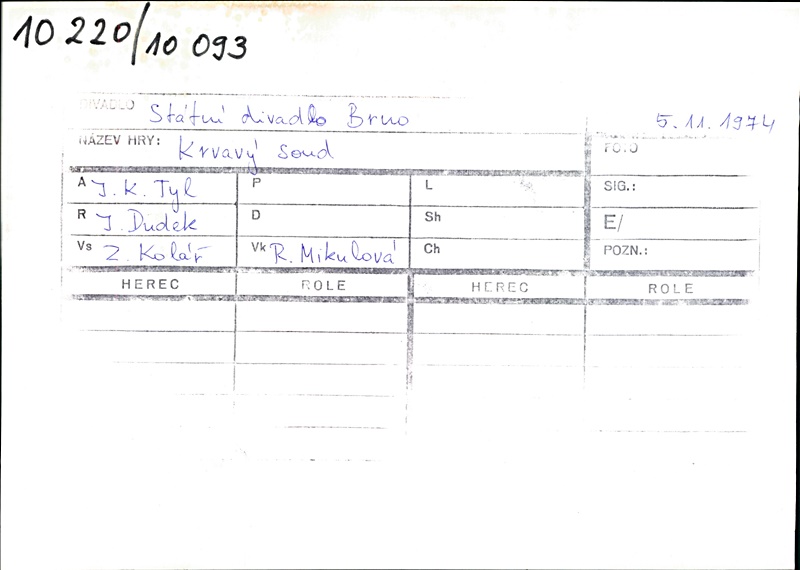 10 220/10 093
DIVADLO Státní divadlo Brno 5.11.1974
NÁZEV HRY: Krvavý soud FOTO
A J. K. Tyl P L SIG.:
R J. Dudek D Sh E/
Vs Z. Kolář Vk R. Mikulová Ch POZN.:
HEREC ROLE HEREC ROLE